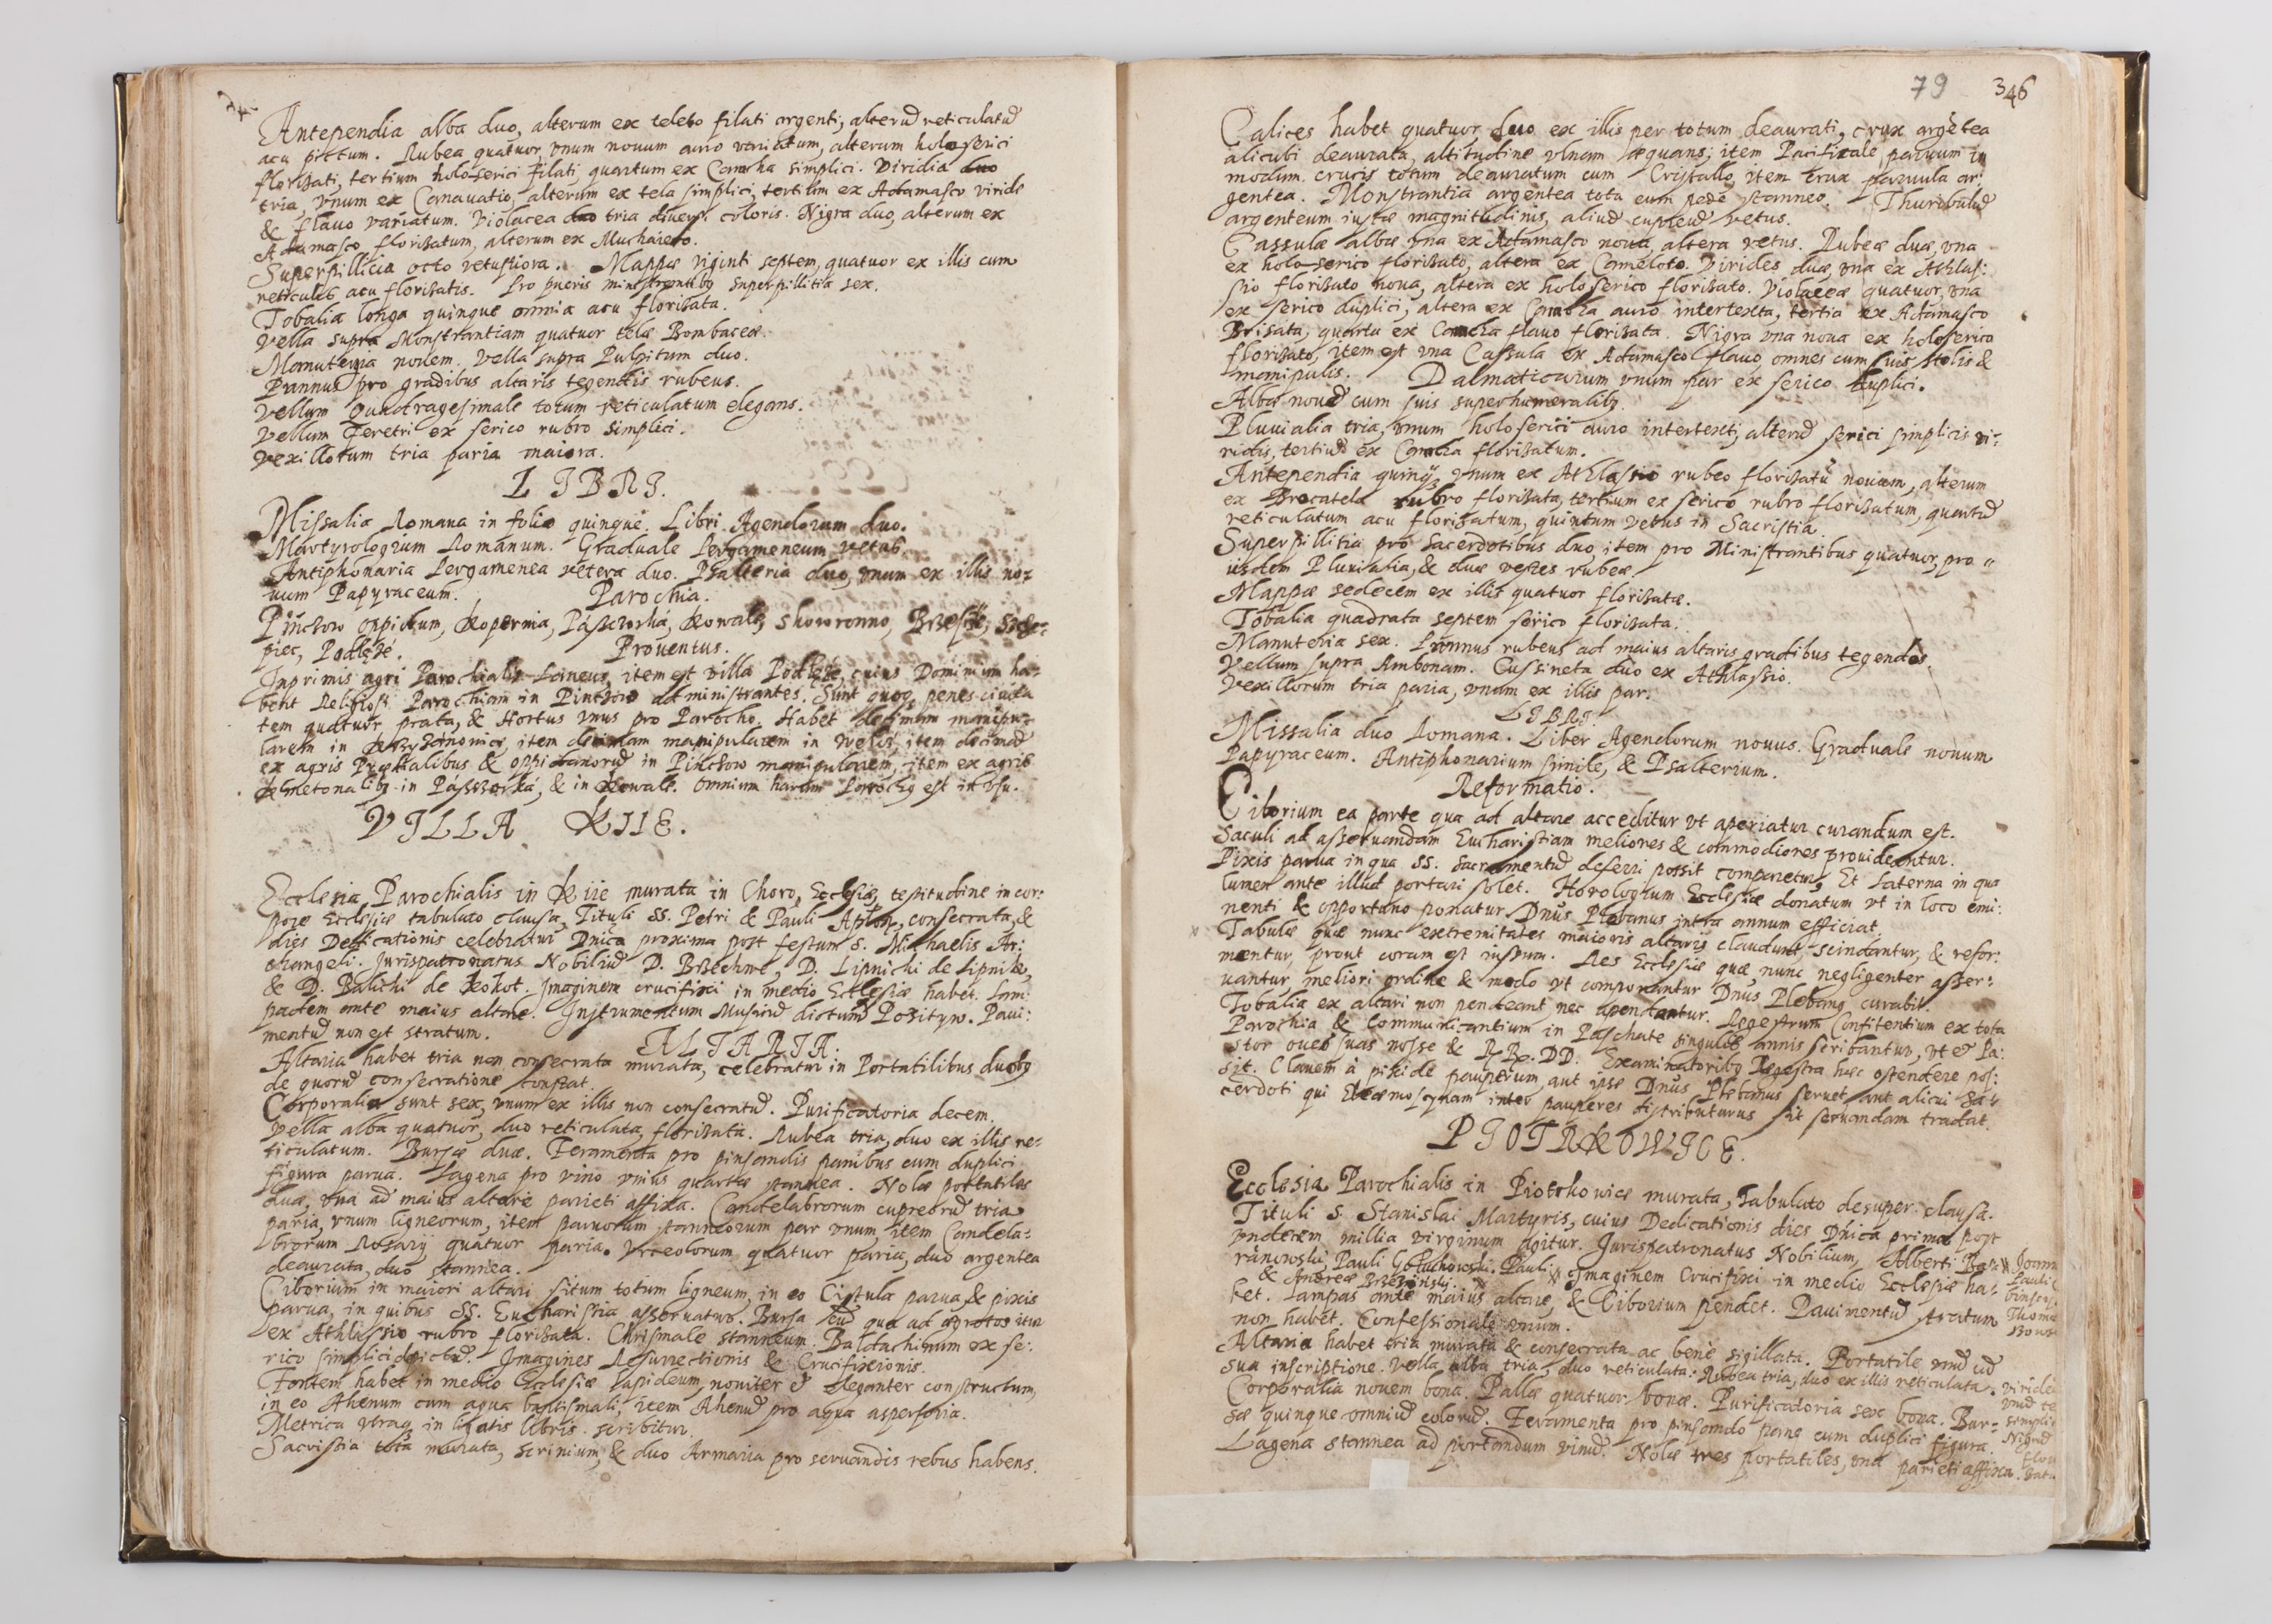 Antependia alba duo, alterum ex teleto filati argenti, alterũ reticulatũ
acu pictum. Rubea quatuor, vnum nouum auro variatum, alterum holoserici
florisati, tertium holoserici filati, quartum ex Camcha simplici. Viridia duo
tria, vnum ex Canauatio, alterum ex tela simplici, tertium ex Adamasco viride
& flauo variatum. Violacea duo tria diuers. coloris. Nigra duo, alterum ex
Adamasco florisatum, alterum ex Muchaiero.
Superpillicia octo vetustiora. Mappæ viginti septem, quatuor ex illis cum
reticulis acu florisatis. Pro pueris ministrantibq superpillitia sex.
Tobalia longa quinque omnia acu florisata.
Vella supra Monstrantiam quatuor telæ Bombaceæ.
Manuteria nouem. Vella supra Pulpitum duo.
Pannus pro gradibus altaris tegendis rubeus.
Vellum Quadragesimale totum reticulatum elegans.
Vellum Feretri ex serico rubro simplici.
Vexillorum tria paria maiora.
LIBRI.
Missalia Romana in folio quinque. Libri Agendorum duo.
Martyrologium Romanum. Graduale Pergameneum vetus.
Antiphonaria Pergamenea vetera duo. Psalteria duo, vnum ex illis no-
uum Papyraceum. Parochia.
Pinczow oppidum, Kopernia, Pasczorka, Kowale, Skowronno,
piec, Podłęże. Prouentus.
Inprimis agri Parochialis Laneus, item est villa Podłęże, cuius Dominium ha-
bent Religiosi Parochiam in Pinczow administrantes. Sunt quoq penes ciuita
tem quatuor prata, & Hortus vnus pro Parocho. Habet decimam manipu-
larem in item decimam manipularem in item decimã
ex agris Prædialibus & oppidanorũ in Pinczow manipularem, item ex agris
Kmetonalibq in Pasczorka, & in Kowale. omnium harum Parochq est in vsu.
VILLA KIIE.
Ecclesia Parochialis in Kiie murata in Choro, Ecclesiæ, testitudine in cor:
pore Ecclesiæ tabulato clausa, Tituli SS. Petri & Pauli Aplor, consecrata, &
dies Dedicationis celebratur Dnica proxima post festum S. Michaelis Ar:
changeli. Jurispatronatus Nobiliũ D. Brzechwe, D. Lipnichi de Lipnike,
& D. Balichi de Kokot. Imaginem crucifixi in medio Ecclesiæ habet. Lam:
padem ante maius altare. Instrumentum Musicũ dictum Pozityw. Paui:
mentũ non est stratum. ALTARIA.
Altaria habet tria non consecrata murata, celebratur in Portatilibus duobq
de quorũ consecratione constat.
Corporalia sunt sex, vnum ex illis non consecratũ. Purificatoria decem.
Vella alba quatuor, duo reticulata florisata. Rubea tria, duo ex illis re-
ticulatum. Bursæ duæ. Feramenta pro pinsandis panibus cum duplici
figura parua. Lagena pro vino vnius quartæ stannea. Nolæ portatiles
duæ, vna ad maius altare parieti affixa. Candelabrorum cupreorũ tria
paria, vnum ligneorum, item paruorum stanneorum par vnum, item Candela-
brorum Rosarij quatuor paria. Vrceolorum quatuor paria, duo argentea
deaurata, duo stannea.
Ciborium in maiori altari situm totum ligneum, in eo Cistula parua, & pixis
parua, in quibus SS. Eucharistia asseruatur. Bursa cũ qua ad ægrotos itur
ex Athlassio rubro florisata. Chrismale stanneum. Baldachinum ex se:
rico simplici Imagines Resurrectionis & Crucifixionis.
Fontem habet in medio Ecclesiæ lapideum, nouiter & eleganter constructum,
in eo Ahenum cum aqua baptismali, item Ahenũ pro aqua aspersoria.
Metrica vtraq in ligatis libris scribitur.
Sacristia tota murata, scrinium, & duo Armaria pro seruandis rebus habens.
79 346
Calices habet quatuor, duo ex illis per totum deaurati, crux argẽtea
alicubi deaurata, altitudine vlnam æquans; item Pacificale paruum in
modum crucis totum deauratum cum Cristallo, item crux paruula ar:
gentea. Monstrantia argentea tota cum pede stanneo. Thuribulũ
argenteum iustæ magnitudinis, aliud cupreũ vetus.
Cassulæ albæ vna ex Adamasco noua, altera vetus. Rubeæ duæ, vna
ex holoserico florisato, altera ex Cameloto. Virides duæ, vna ex Athlas:
sio florisato noua, altera ex holoserico florisato. Violaceæ quatuor, vna
ex serico duplici, altera ex Camcha auro intertexta, tertia ex Adamasco
Brisata, quarta ex Camcha flauo florisata. Nigra vna noua ex holoserico
florisato, item est vna Cassula ex Adamasco flauo, omnes cum suis stolis &
manipulis. Dalmaticarum vnum par ex serico duplici.
Albæ nouẽ cum suis superhumeralibq.
Pluuialia tria, vnum holoserici auro intertexti, alterũ serici simplicis vi-
ridis, tertiũ ex Camcha florisatum.
Antependia quinq, vnum ex Athlassio rubeo florisatũ nouum, alterum
ex Brocatela rubro florisata, tertium ex serico rubro florisatum, quartũ
reticulatum acu florisatum, quintum vetus in Sacristia.
Superpillitia pro Sacerdotibus duo, item pro Ministrantibus quatuor, pro
iisdem Pluuialia, & duæ vestes rubeæ.
Mappæ sedecem ex illis quatuor florisatæ.
Tobalia quadrata septem serico florisata.
Manuteria sex. Pannus rubeus ad maius altaris gradibus tegendis.
Vellum supra Ambonam. Cussineta duo ex Athlassio.
Vexillorum tria paria, vnum ex illis par.
LIBRI.
Missalia duo Romana. Liber Agendorum nouus. Graduale nouum
Papyraceum. Antiphonarium simile, & Psalterium.
Reformatio.
Ciborium ea parte qua ad altare acceditur vt aperiatur curandum est.
Saculi ad asseruandam Eucharistiam meliores & commodiores prouideantur.
Pixis parua in qua SS. Sacramentũ deferri possit comparetur, Et Laterna in qua
lumen ante illud portari solet. Horologium Ecclesiæ donatum vt in loco emi:
nenti & opportuno ponatur Dnus Plebanus intra annum efficiat.
Tabulæ quæ nunc extremitates maioris altaris claudunt, scindantur, & refor:
mentur, prout coram est iussum. Res Ecclesiæ quæ nunc negligenter asser:
uantur, meliori ordine & modo vt componantur Dnus Plebanq curabit.
Tobalia ex altari non pendeant, nec apendantur. Regestrum Confitentium ex tota
Parochia & Communicantium in Paschate singulis annis scribantur, vt & Pa:
stor oues suas nosse & RR. DD. Examinatoribq Regestra hæc ostendere pos:
sit. Clauem à pixide pauperum, aut ipse Dnus Plebanus seruet, aut alicui Sa:
cerdoti qui Eleæmosynam inter pauperes distributurus sit seruandam tradat.
PIOTRKOWICE.
Ecclesia Parochialis in Piotrkowice murata, Tabulato desuper clausa.
Tituli S. Stanislai Martyris, cuius Dedicationis dies Dnica prima post
vndecem millia virginum agitur. Jurispatronatus Nobilium, Alberti
Pauli Pauli Imaginem Crucifixi in medio Ecclesiæ ha-
& Andreæ
bet. Lampas ante maius altare, & Ciborium pendet. Pauimentũ stratum
non habet. Confessionale vnum.
Altaria habet tria murata & consecrata ac bene sigillata. Portatile vnũ cũ
sua inscriptione. Vella alba tria, duo reticulata: Rubea tria, duo ex illis reticulata.
Corporalia nouem bona. Pallæ quatuor bonæ. Purificatoria sex bona. Bur-
sæ quinque omniũ colorũ. Feramenta pro pinsando pane cum duplici figura.
Lagena stannea ad portandum vinũ. Nolæ tres portatiles, vna parieti affixa.